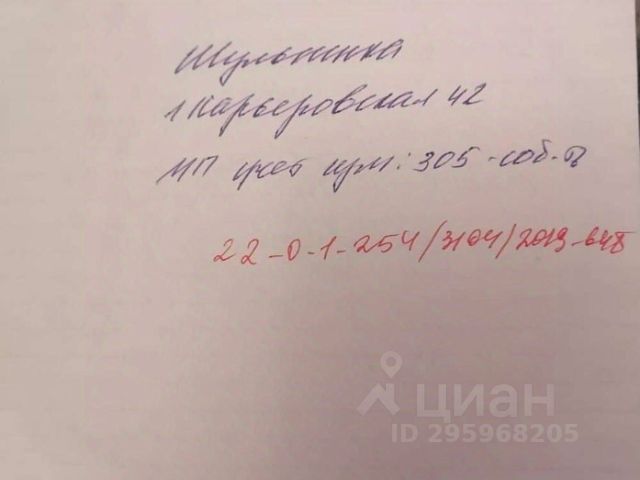 Шульгинка
1 Карьеровская 42
МП учет
305-соб-
22-0-1-254/3104/2019-648
циан
ID 295968205